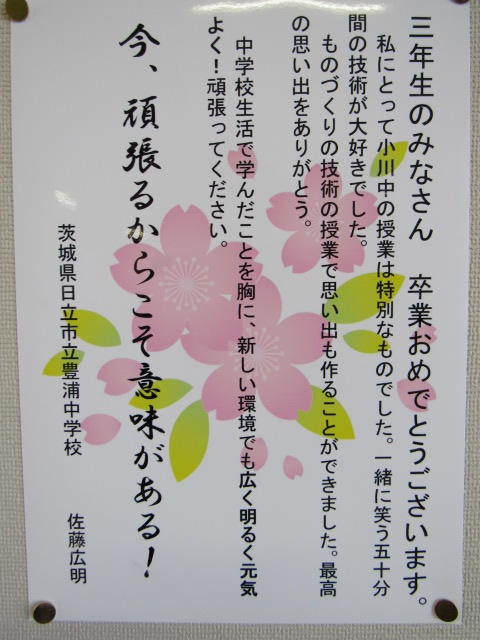 三年生のみなさん　卒業おめでとうございます。
私にとって小川中の授業は特別なものでした。一緒に笑う五十分
間の技術が大好きでした。
ものづくりの技術の授業で思い出も作ることができました。最高
の思い出をありがとう。
中学校生活で学んだことを胸に、新しい環境でも広く明るく元気
よく！頑張ってください。
今、頑張るからこそ意味がある！
茨城県日立市立豊浦中学校
佐藤広明